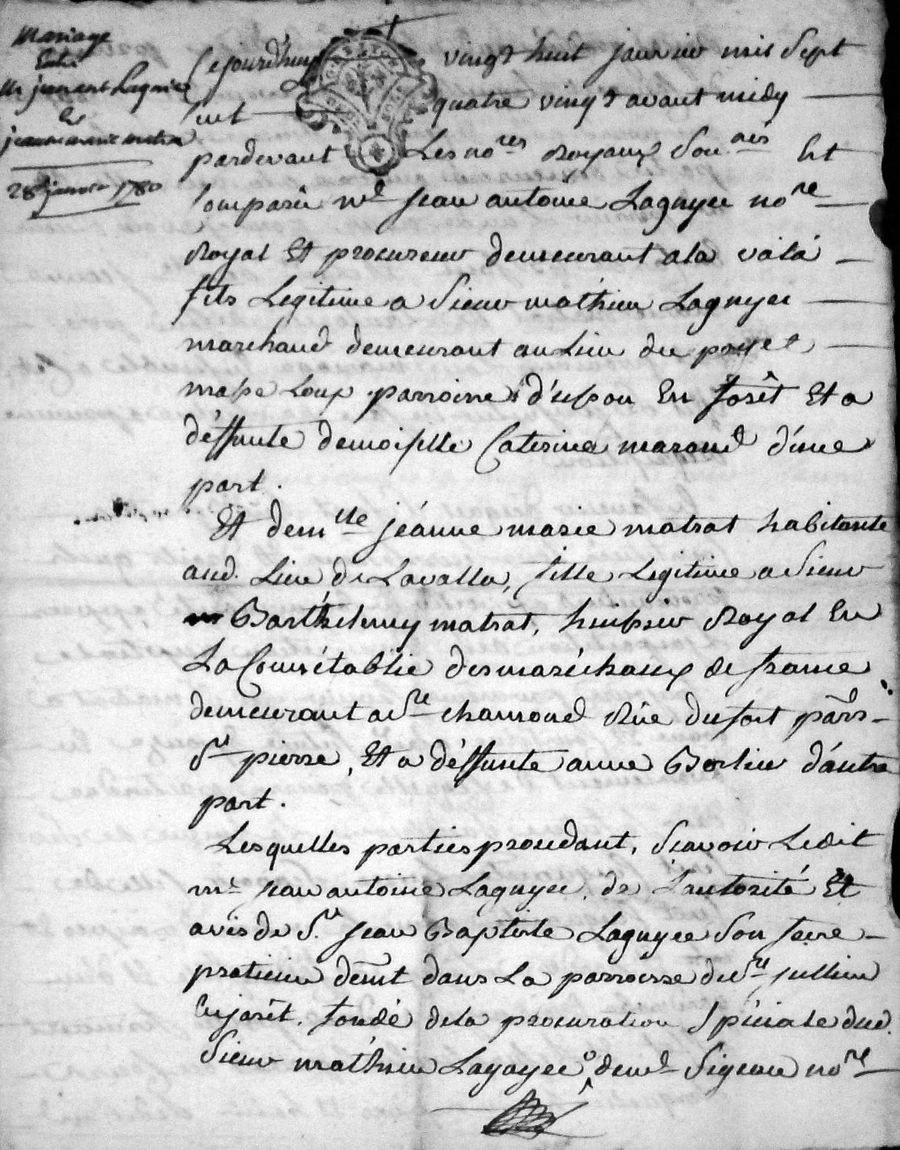 Mariage
Entre
Mr jean ant Lagnier
Et
jeanne marie matra
28 janvier 1780
Cejourdhuy vingt huit janvier mil sept
cent quatre vingt avant midy
pardevant Les nores Royaux sou nés Et
comparu me jean antoine Lagnyer nore
Royal Et procureur demeurant a la vala
fils Legitime a sieur mathieu Lagnyer
marchand demeurant au Lieu du
Loup parroisse d'usson En forêt Et a
déffunte demoiselle Caterine d'une
part.
Et demlle jéanne marie matrat habitante
aud. Lieu de Lavalla, fille Legitime a sieur
Barthélemy matrat, huissier Royal En
La Connétablie des maréchaux de france
demeurant a st chamond Rüe du fort parrs
st pierre, Et a déffunte anne Gorlier d'autre
part.
Lesquelles parties procedant, scavoir Ledit
me jean antoine Lagnyer, de L'autorité Et
avis de sr. jean Baptiste Lagnyer son frere
praticien demt dans La parroisse de st jullien
En jarêt, fondé de la procuration speciale dud.
sieur mathieu Lagnyer